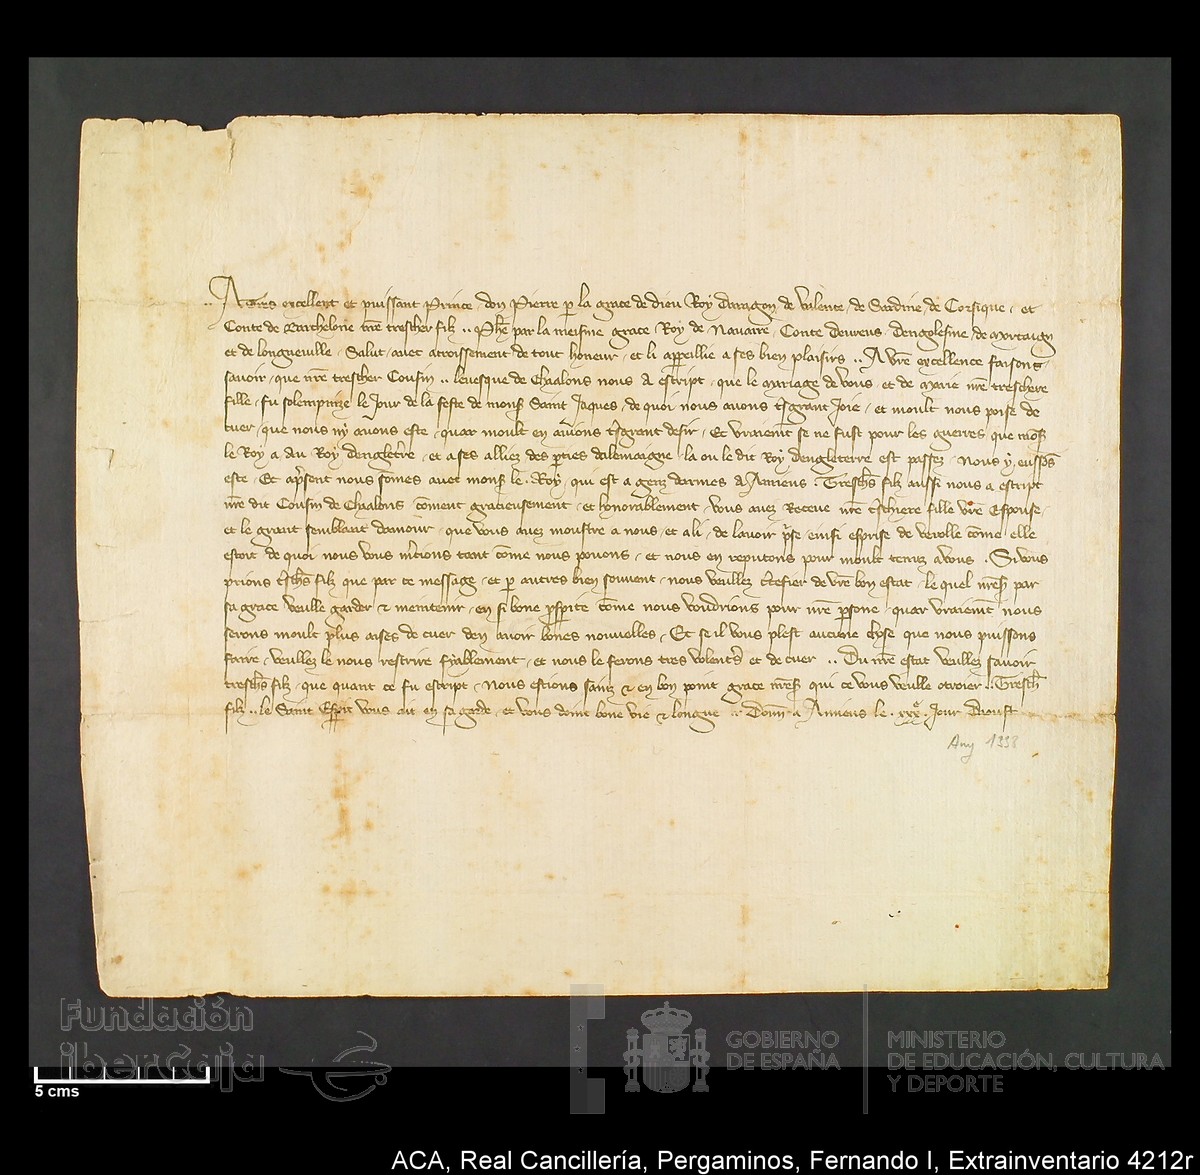 .. A tres excellent et puissant Prince, don Pierre p la grace de dieu Roy Daragon de Valence, de Sardine, de Corsique, et
Conte de Barchelone nre trescher filz .. Phe par la meisme grace Roy de Navarre, Conte Devreus, Dengolesme, de Mortaign
et de longueville, Salut, avec acroissement de tout honeur, et li appeillie a ses bien plaisirs .. A vre excellence faisons
savoir, que nre trescher Cousin .. levesque de Chaalons nous a escript, que le mariage de vous, et de Marie nre treschere
fille, fu solempnize le Jour de la feste de mons Saint Jaques, de quoi nous avons tsgrant Joie, et moult nous poise de
cuer, que nous ny avons este, quar moult en avions tsgrent desir, Et vraiemt se ne fust pour les guerres, que mons
le Roy a, au Roy Dengleterre, et a ses alliez des pties dalemaigne, la ou le dit Roy Dengleterre est passez, Nous y eussions
este, Et apsent nous somes avec mons le Roy, qui est a genz darmes a Amiens. Treschs filz aussi nous a escript
nre dit Cousin de Chaalons, coment gracieusement, et honorablement, vous avez Receue nre tschiere fille vre Espouse,
et le grant semblant damour, que vous avez moustre a nous, et a li, de lavoir pse einsi esprise de verolle come elle
estoit, de quoi nous vous mcions tant come nous povons, et nous en reputons pour moult tenuz a vous. Si vous
prions tschs filz que par ce message, et p autres bien souvent, nous veullez ctefier de vre bon estat, le quel nres par
sa grace veulle garder & meintenir, en si bone pspite come nous voudrions pour nre psone, quar vraiemt nous
serons moult plus aises de cuer den avoir bones nouvelles, Et se il vous plest aucune chose que nous puissons
faire, veullez le nous rescrire fyablement, et nous le ferons tres volents et de cuer .. Du nre estat veullez savoir
treschs filz, que quant ce fu escript, Nous estions sainz & en bon point grace nres qui ce vous veulle otroier .. Tresch
filz .. le Saint Esprit vous ait en sa garde, et vous doint bone vie & longue .. Donn a Amiens le .xxx. Jour Daoust
Any 1338
5 cms
Fundación
iberCaja
GOBIERNO
DE ESPAÑA
MINISTERIO
DE EDUCACIÓN, CULTURA
Y DEPORTE
ACA, Real Cancillería, Pergaminos, Fernando I, Extrainventario 4212r